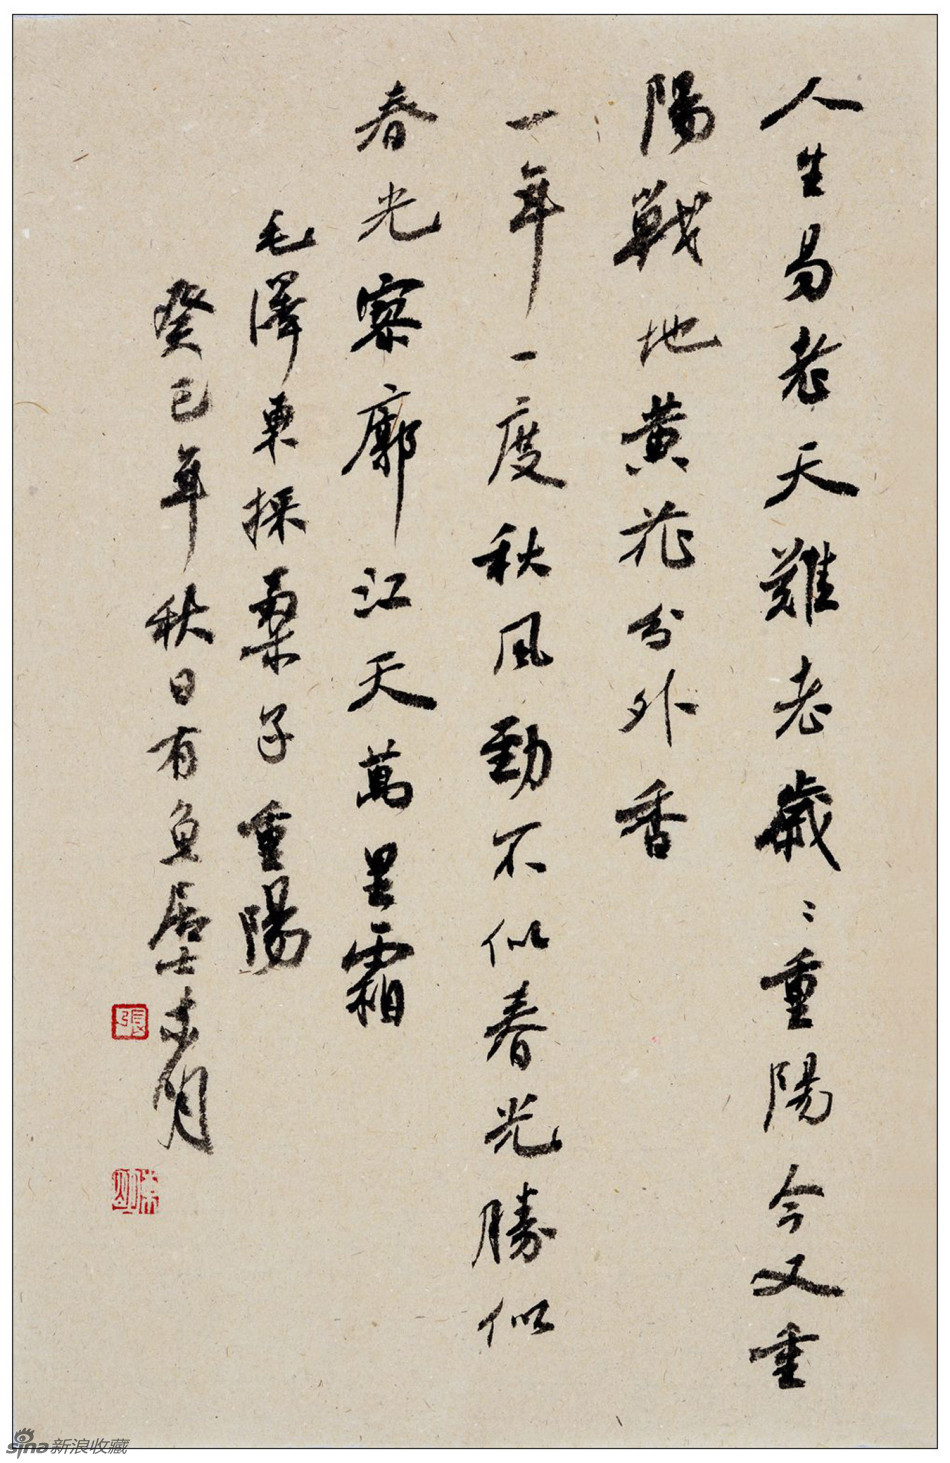 人生易老天難老歲〻重陽今又重
陽戰地黄花分外香
一年一度秋風勁不似春光勝似
春光寥廓江天萬里霜
毛澤東採桑子重陽
癸巳年秋日有魚居士未明
張
未明
sina新浪收藏